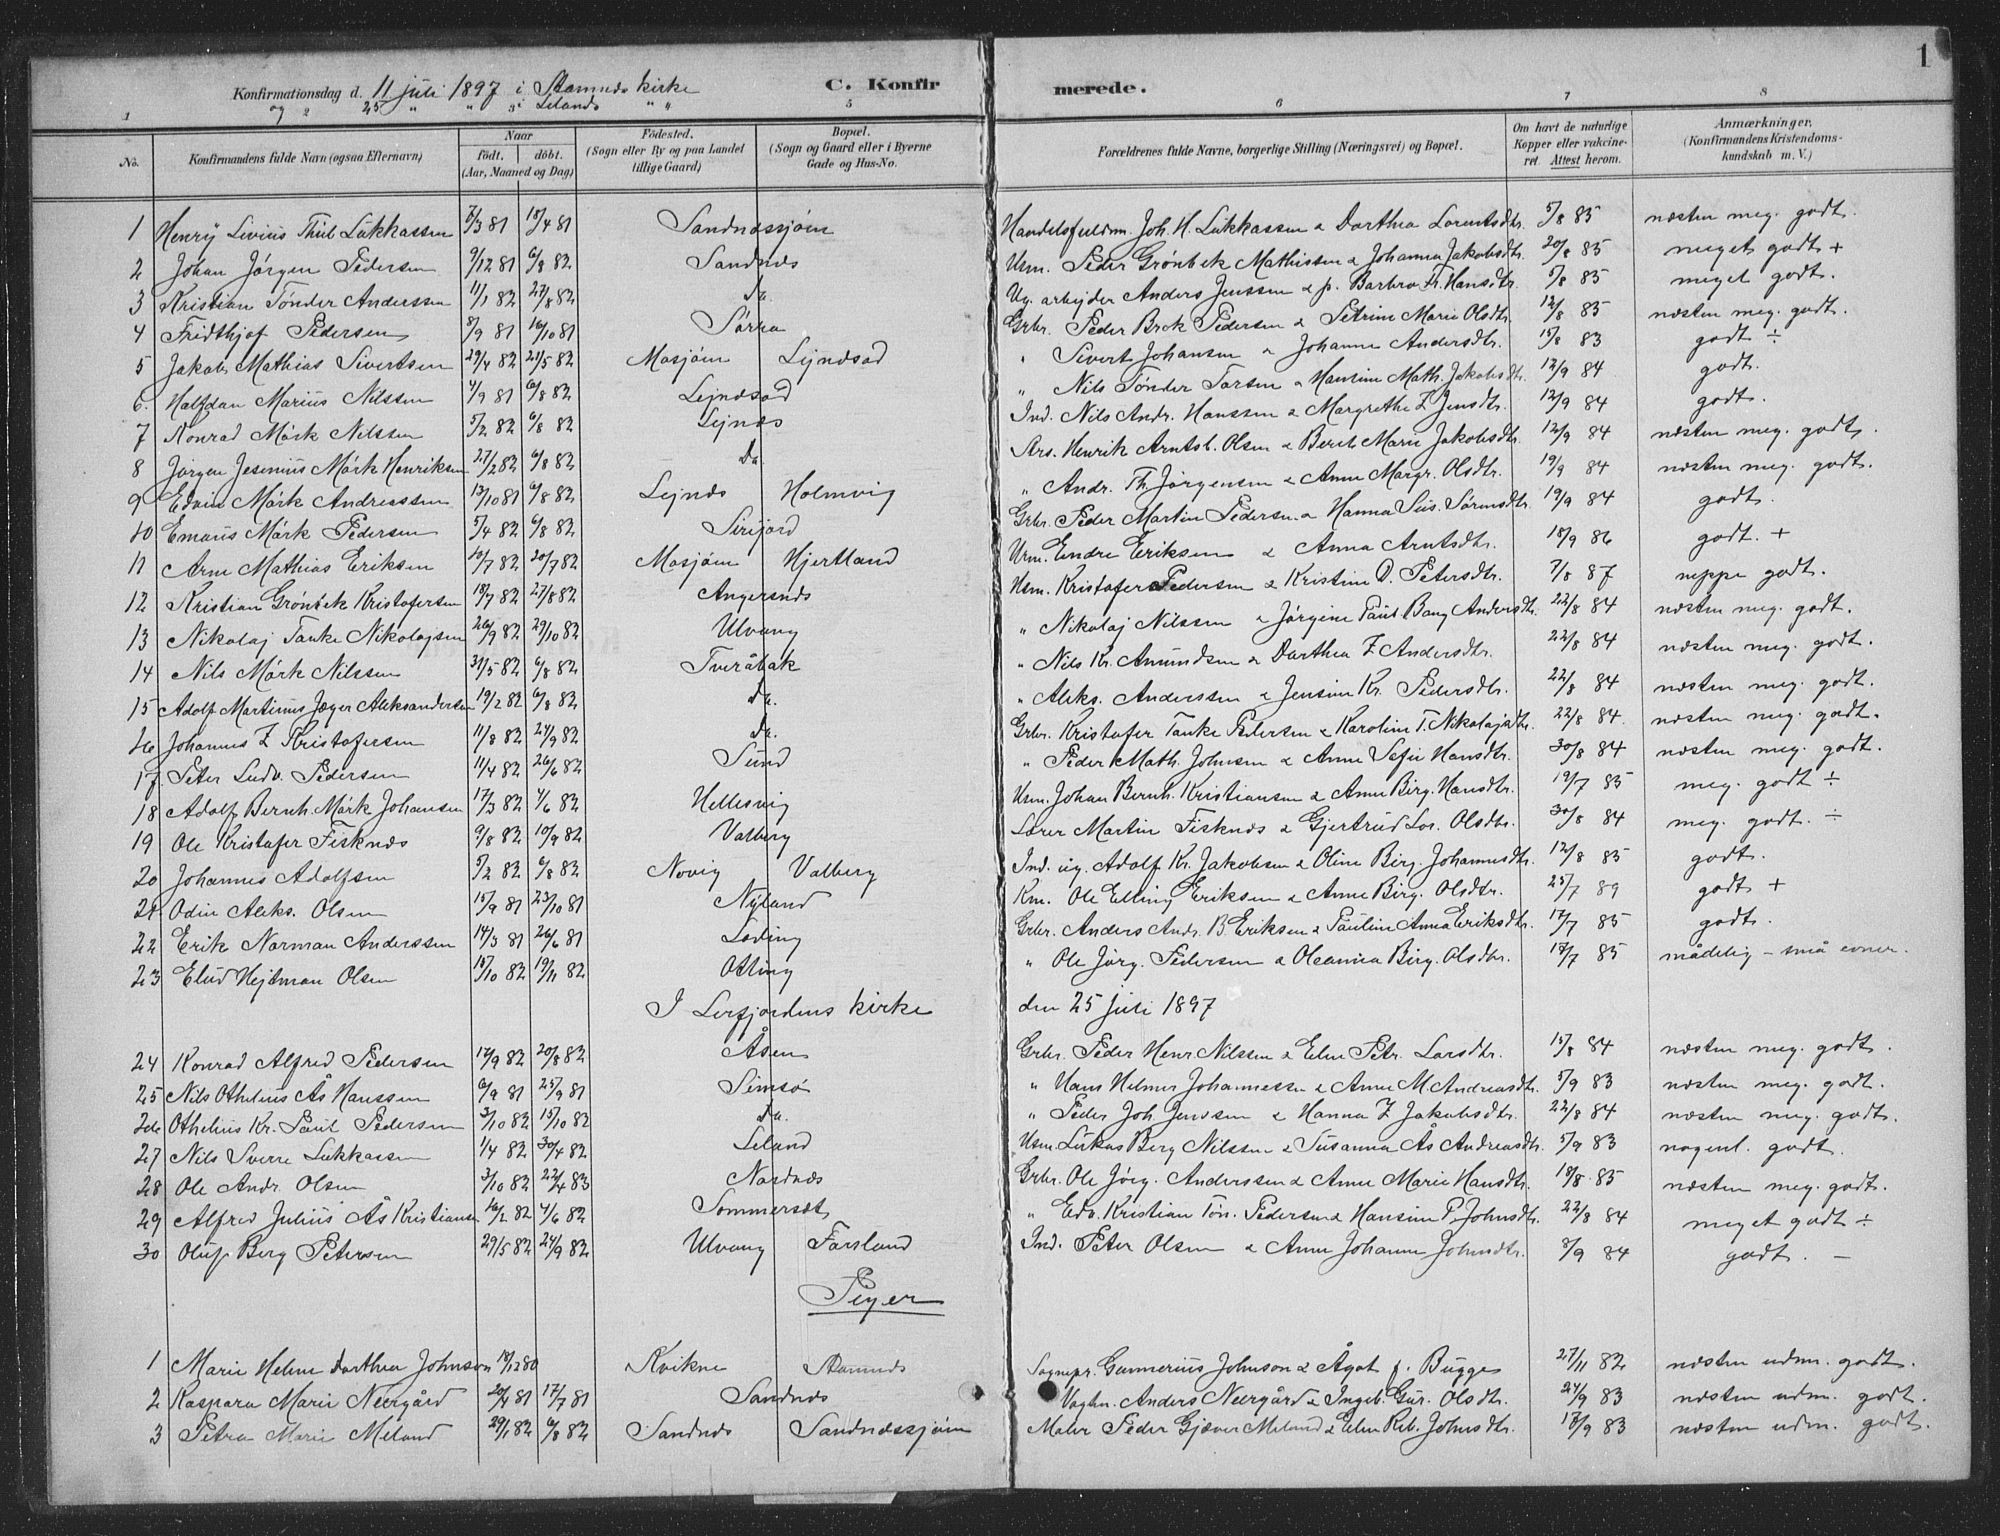 1
Konfirmationsdag d. 11 juli 1897 i Stamnes kirke C. Konfirmerede.
og 25 " " i Leland " "
1 2 3 5 6 7 8
No. Konfirmandens fulde Navn (ogsaa Efternavn) Naar født. døbt. (Aar, Maaned og Dag) Fødested. (Sogn eller By og paa Landet tillige Gaard) Bopæl. (Sogn og Gaard eller i Byerne Gade og Hus-No. Forældrenes fulde Navne, borgerlige Stilling (Næringsvei) og Bopæl. Om havt de naturlige Kopper eller vakcineret. Attest herom. Anmærkninger. (Konfirmandens Kristendomskundskab m. V.)
1 Henry Livius Thiel Lukkassen 7/3 81 18/4 81 Sandnessjøen Handelsfuldm. Joh. H. Lukkassen & Dorthea Lorentsdtr. 5/8 85 næsten meg. godt.
2 Johan Jørgen Pedersen 9/12 81 6/8 82 Sandnes Usm. Peder Grønbek Mathissen & Johanna Jakobsdtr. 20/8 85 meget godt +
3 Kristian Tønder Anderssen 11/1 82 27/8 82 do. Ug. arbejder Anders Jenssen & p. Barbro Fr. Hansdtr. 5/8 85 meget godt.
4 Fridthjof Pedersen 8/9 81 16/10 81 Sørra Grbr. Peder Brok Pedersen & Petrine Marie Olsdtr. 12/8 85 næsten meg. godt.
5 Jakob Mathias Sivertsen 29/4 82 21/5 82 Mosjøen Lejndsod " Sivert Johansen & Johanne Andersdtr. 15/8 83 godt ÷
6. Halfdan Marius Nilssen 4/9 81 6/8 82 Lejndsod " Nils Tønder Torsen & Hansine Math. Jakobsdtr. 12/9 84 godt.
7 Konrad Mørk Nilssen 5/2 82 6/8 82 Lejndes Ind. Nils Andr. Hanssen & Margrethe Z Jensdtr. 12/9 84 godt.
8 Jørgen Jesenius Mørk Henriksen 27/2 82 6/8 82 do. Ars. Henrik Arntsb. Olsen & Berit Marie Jakobsdtr. 12/9 84 næsten meg. godt.
9 Edvin Mørk Andreassen 13/10 81 6/8 82 Lejnds Holmvig " Andr. Th. Jørgensen & Anne Margr. Olsdtr. 19/9 84 næsten meg. godt.
10 Emaus Mørk Pedersen 5/4 82 6/8 82 Sirifjord Grbr. Peder Martin Pedersen & Hanna Sus. Sørensdtr. 19/9 84 godt.
11 Arne Mathias Eriksen 10/7 82 20/7 82 Mosjøen Hjertland Usm. Endre Eriksen & Anna Arntsdtr. 18/9 86 godt. +
12 Kristian Grønbek Kristofersen 18/7 82 27/8 82 Angersnes Usm. Kristofer Pedersen & Kristine D. Petersdtr. 7/8 87 neppe godt.
13 Nikolaj Tanke Nikolajsen 26/9 82 29/10 82 Ulvang " Nikolaj Nilssen & Jørgine Paul Bang Andersdtr. 22/8 84 næsten meg. godt.
14 Nils Mørk Nilssen 31/5 82 6/8 82 Tveråbak " Nils Kr. Amundsen & Dorthea Z Andersdtr. 22/8 84 næsten meg. godt.
15 Adolf Martinus Jæger Aleksandersen 19/2 82 6/8 82 do. " Aleks. Anderssen & Jensine Kr. Pedersdtr. 22/8 84 næsten meg. godt.
16 Johannes Z Kristofersen 11/8 82 24/9 82 do. Grbr. Kristofer Tanke Pedersen & Karoline T. Nikolajsdtr. 22/8 84. næsten meg. godt.
17. Peter Ludv. Pedersen 11/4 82 26/6 82 Sund " Peder Math. Johnsen & Anne Sofie Hansdtr. 30/8 84 næsten meg. godt.
18 Adolf Bernh. Mørk Johansen 17/3 82 4/6 82 Hellesvig Usm. Johan Bernh. Kristiansen & Anne Birg. Hansdtr. 19/7 85 meg. godt ÷
19 Ole Kristofer Fisknes 9/8 82 10/9 82 Valberg Lærer Martin Fisknes & Gjertrud Lov. Olsdtr. 30/8 84 meg. godt. ÷
20 Johannes Adolfsen 5/2 82 6/8 82 Novig Valberg Ind. ug. Adolf Kr. Jakobsen & Oline Birg. Johannesdtr. 12/8 85 godt.
21 Odin Aleks. Olsen 15/9 81 23/10 81 Nyland Km. Ole Elling Eriksen & Anne Birg. Olsdtr. 25/7 89 godt +
22 Erik Norman Anderssen 14/3 81 26/6 81 Leding Grbr. Anders Andr. B. Eriksen & Pauline Anna Eriksdtr. 17/7 85 godt.
23 Elud Hejtman Olsen 15/10 82 19/11 82 Otting " Ole Jørg. Pedersen & Oleanna Birg. Olsdtr. 17/7 85 mådelig – små evner.
I Lerfjordens kirke den 25 juli 1897
24 Konrad Alfred Pedersen 17/9 82 20/8 82 Åsen Grbr. Peder Henr. Nilssen & Elen Petr. Larsdtr. 15/8 84 næsten meg. godt.
25 Nils Othelius Ås Hanssen 6/9 81 25/9 81 Simsø " Hans Helmer Johannessen & Anne M Andreasdtr. 5/9 83 næsten meg. godt.
26 Othelius Kr. Paul Pedersen 3/10 82 15/10 82 do. " Peder Joh. Jenssen & Hanna Z Jakobsdtr. 22/8 84 næsten meg. godt.
27 Nils Sverre Lukkassen 1/4 82 30/4 82 Leland Usm. Lukas Berg Nilssen & Susanna Ås Andreasdtr. 5/9 83 nogenl. godt.
28 Ole Andr. Olsen 3/10 82 22/4 83 Nordnes Grbr. Ole Jørg. Anderssen & Anne Marie Hansdtr. 18/8 85 næsten meg. godt.
29 Alfred Julius Ås Kristiansen 16/2 82 4/6 82 Sommerset " Edv. Kristian Tøn. Pedersen & Hansine P. Johnsdtr. 22/8 84 meget godt ÷
30 Oluf Berg Petersen 29/5 82 24/9 82 Ulvang Forsland Ind. Peter Olsen & Anne Johanne Johnsdtr. 8/9 84 godt. –
Piger
1 Marie Helene Dorthea Johnson 18/12 80 Kvikne Stamnes Sognepr. Gunnerius Johnson & Ågot f. Bugge 27/11 82 næsten udm. godt.
2 Kaspara Marie Neergård 20/4 81 17/7 81 Sandnes Vogtn. Anders Neergård & Ingeb. Gur. Olsdtr. 24/9 83 næsten udm. godt.
3 Petra Marie Meland 29/1 82 6/8 82 Sandnes Sandnessjøen Maler Peder Gjæver Meland & Elen Reb. Johnsdtr. 18/9 83 næsten udm. godt.